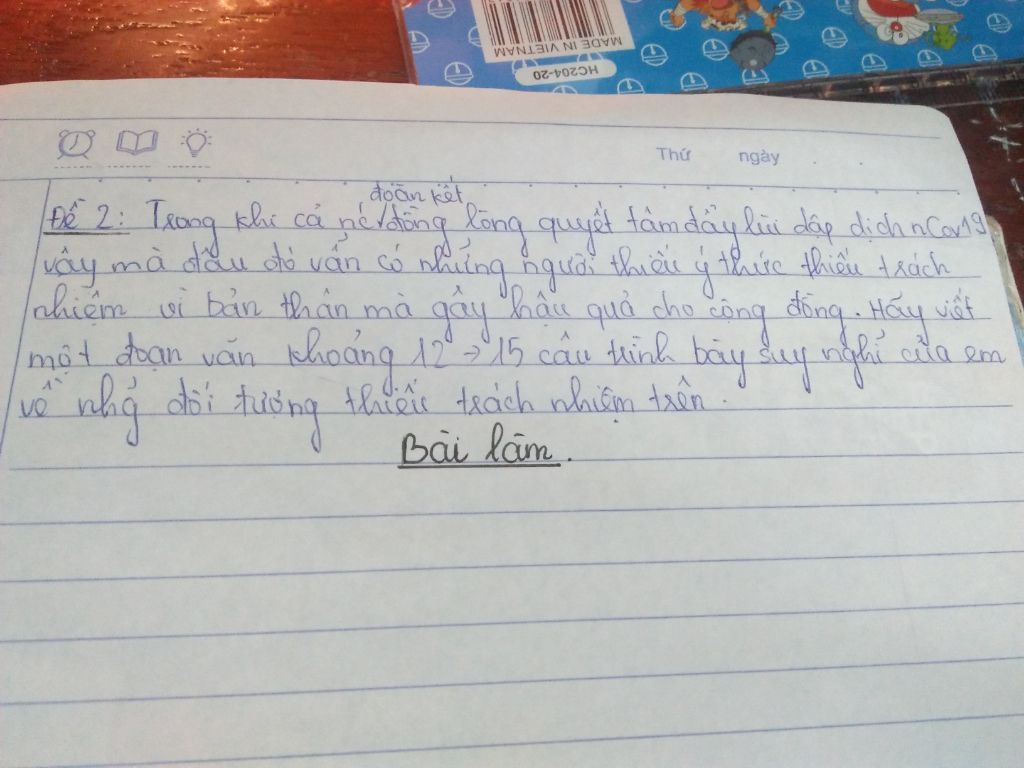 MADE IN VIETNAM
HC204-20
Thứ ngày
đoàn kết
Đề 2: Trong khi cả nc/đồng lòng quyết tâm đẩy lùi dập dịch nCov19
vậy mà đâu đó vẫn có những người thiếu ý thức thiếu trách
nhiệm vì bản thân mà gây hậu quả cho cộng đồng. Hãy viết
một đoạn văn khoảng 12→15 câu trình bày suy nghĩ của em
về nhg đối tượng thiếu trách nhiệm trên.
Bài làm.